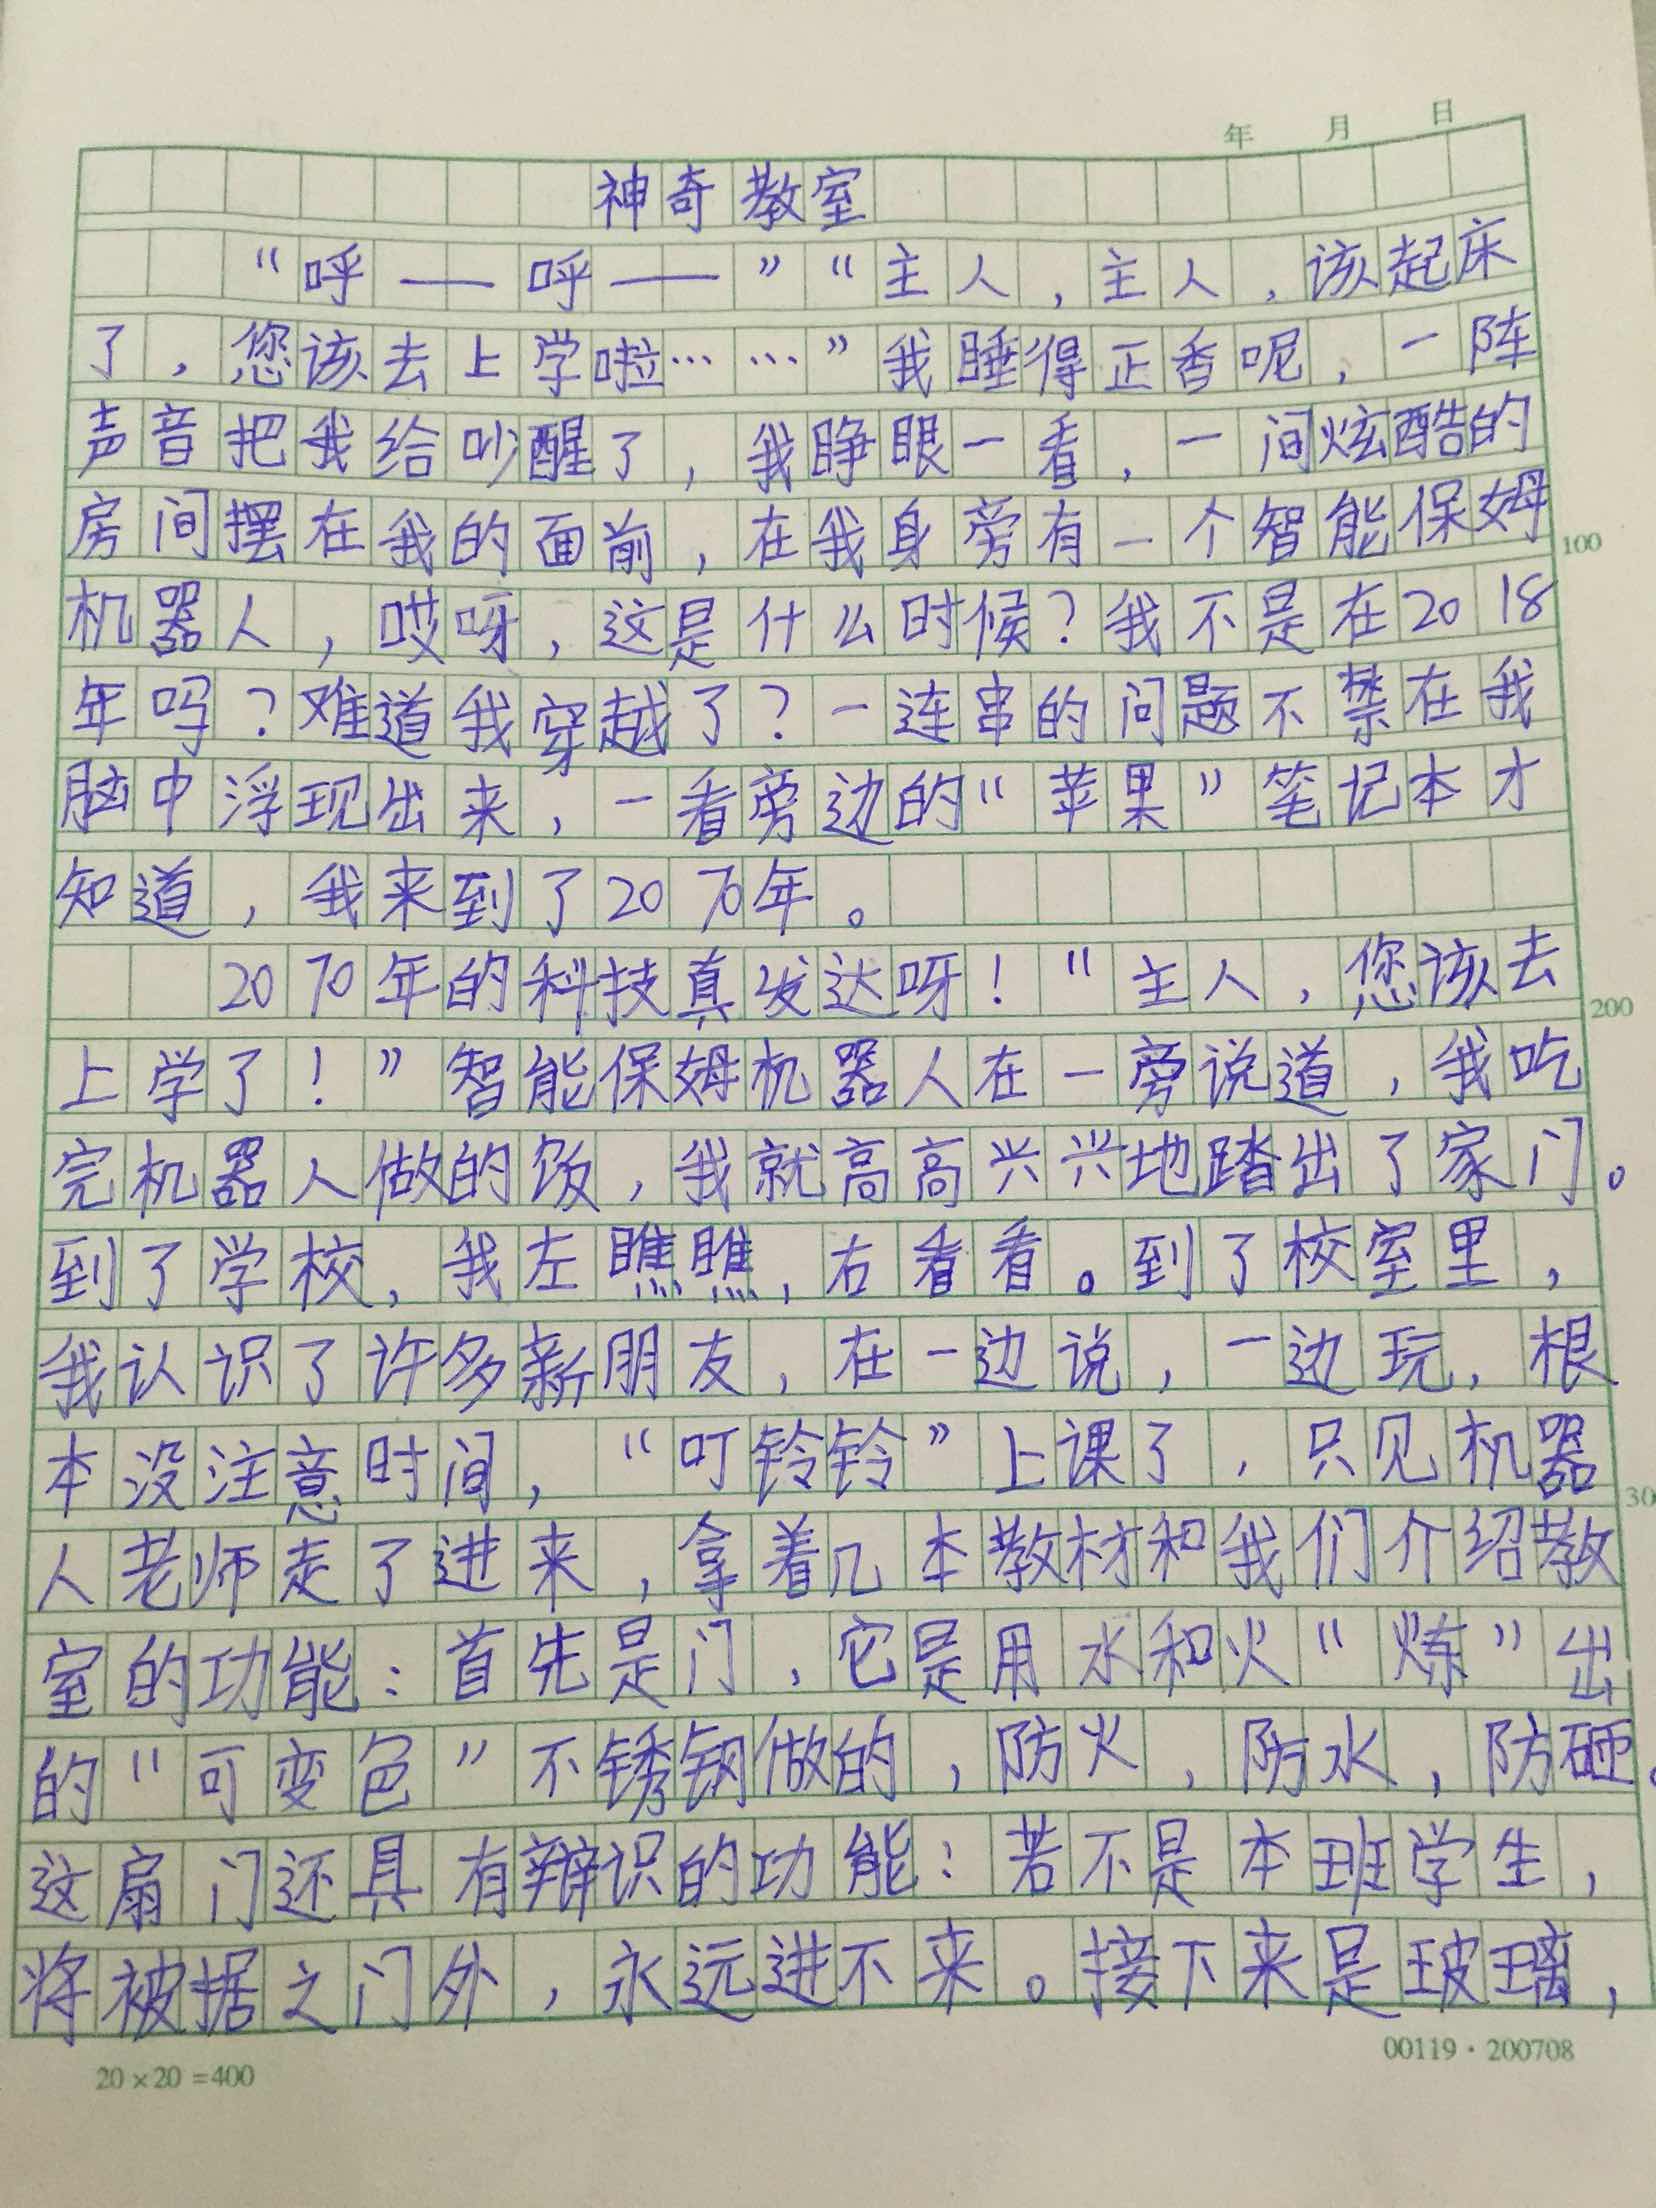 年 月 日
神奇教室
“呼——呼——”“主人,主人,该起床
了,您该去上学啦……”我睡得正香呢,一阵
声音把我给吵醒了,我睁眼一看,一间炫酷的
房间摆在我的面前,在我身旁有一个智能保姆
100
机器人,哎呀,这是什么时候?我不是在2018
年吗?难道我穿越了?一连串的问题不禁在我
脑中浮现出来,一看旁边的“苹果”笔记本才
知道,我来到了2070年。
2070年的科技真发达呀!“主人,您该去
200
上学了!”智能保姆机器人在一旁说道,我吃
完机器人做的饭,我就高高兴兴地踏出了家门。
到了学校,我左瞧瞧,右看看。到了校室里,
我认识了许多新朋友,在一边说,一边玩,根
本没注意时间,“叮铃铃”上课了,只见机器
30
人老师走了进来,拿着几本教材和我们介绍教
室的功能:首先是门,它是用水和火“炼”出
的“可变色”不锈钢做的,防火,防水,防砸。
这扇门还具有辩识的功能:若不是本班学生,
将被据之门外,永远进不来。接下来是玻璃,
20×20=400
00119·200708